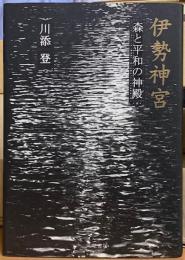 伊勢神宮
森と平和の神殿
川添 登